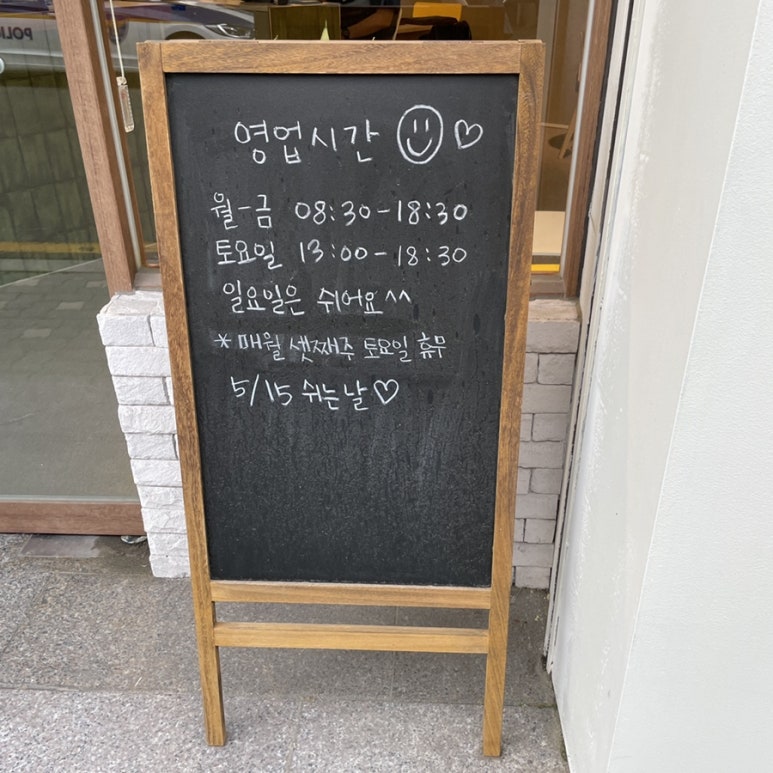 영업시간 ☺ ♡
월-금 08:30-18:30
토요일 13:00-18:30
일요일은 쉬어요^^
*매월 셋째주 토요일 휴무
5/15 쉬는날♡